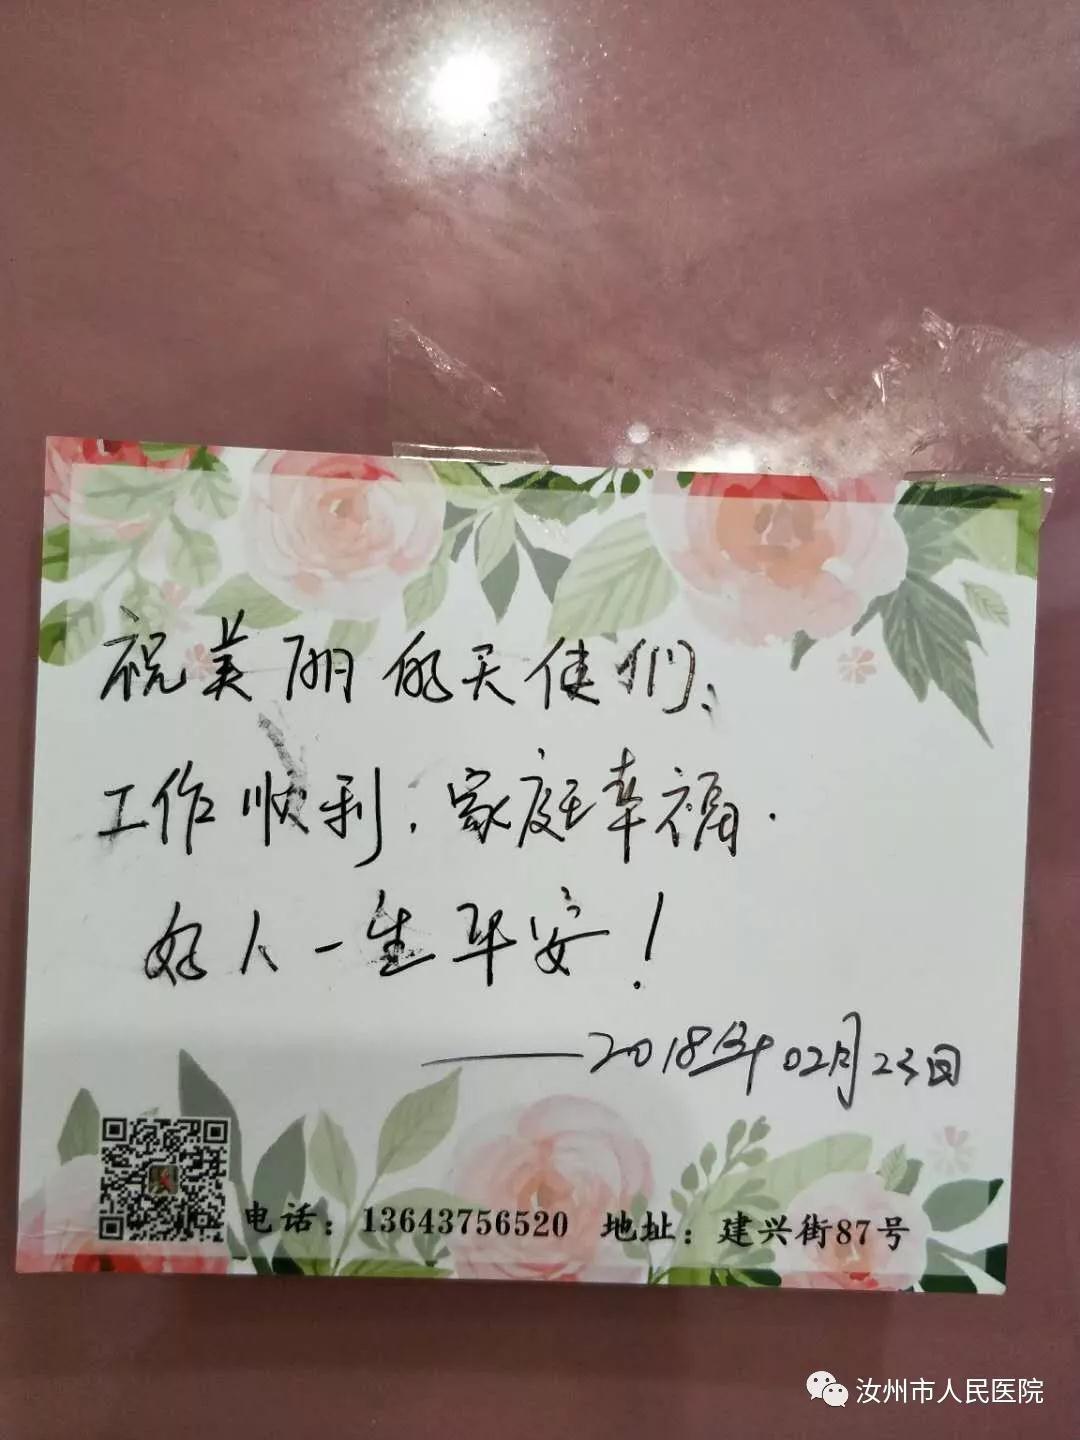 祝美丽的天使们:
工作顺利,家庭幸福.
好人一生平安!
——2018年02月23日
电话:13643756520 地址:建兴街87号
汝州市人民医院